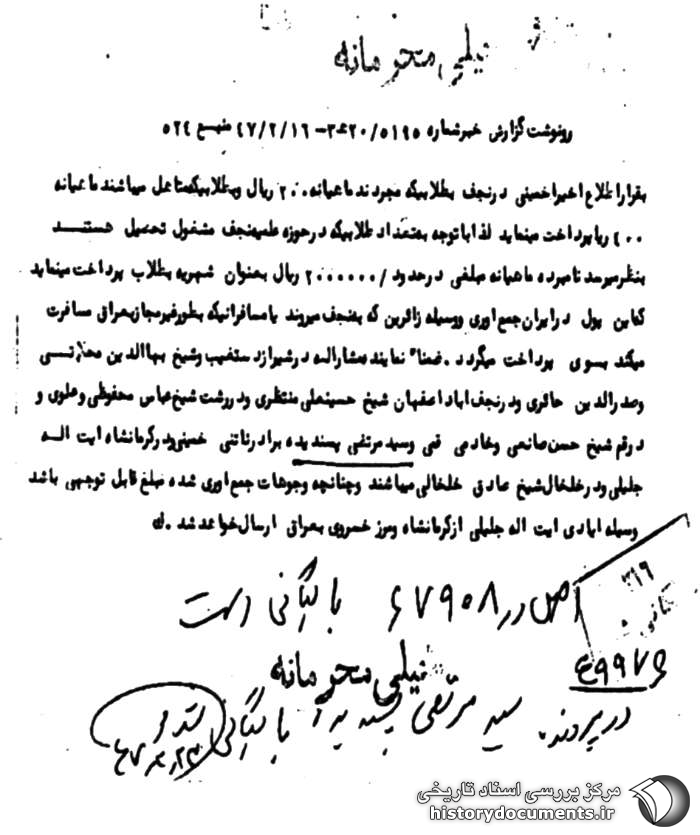 خیلی محرمانه
رونوشت گزارش خبر شماره ۵۱۹۵/۲۰ه۳ - ۴۷/۲/۱۶ منبع ۵۲۴
بقرار اطلاع اخیرا خمینی در نجف بطلابیکه مجردند ماهیانه ۲۰۰ ریال وبطلابیکه متاهل میباشند ماهیانه
۴۰۰ ریا پرداخت مینماید لذا با توجه بتعداد طلابیکه در حوزه علمیه نجف مشغول تحصیل هستند
بنظر میرسد نامبرده ماهیانه مبلغی در حدود /۲۰۰۰۰۰۰ ریال بعنوان شهریه بطلاب پرداخت مینماید
که این پول در ایران جمع اوری ووسیله زائرین که بنجف میروند یا مسافرانیکه بطور غیر مجاز بعراق مسافرت
میکند بسوی پرداخت میگردد . ضمنا" نماینده مشارالـه در شیراز دستغیب وشیخ بهاالدین محلاتـی
وصدرالدین حائری ودر نجف اباد اصفهان شیخ حسینعلی منتظری ودر رشت شیخ عباس محفوظی وعلوی و
در قم شیخ حسن صانعی وخادمی قمی وسید مرتضی پسندیده برادر ناتنی خمینی ودر کرمانشاه ایت الـه
جلیلی ودر خلخال شیخ صادق خلخالی میباشند وچنانچه وجوهات جمع اوری شده مبلغ قابل توجهی باشد
وسیله ایادی ایت اله جلیلی از کرمانشاه ومرز خسروی بعراق ارسال خواهد شد .
اصل در ۶۷۹۰۸ بایگانی است
۳۱۹
خیلی محرمانه
در پرونده سید مرتضی پسندیده بایگانی شود
مرکز بررسی اسناد تاریخی
historydocuments.ir